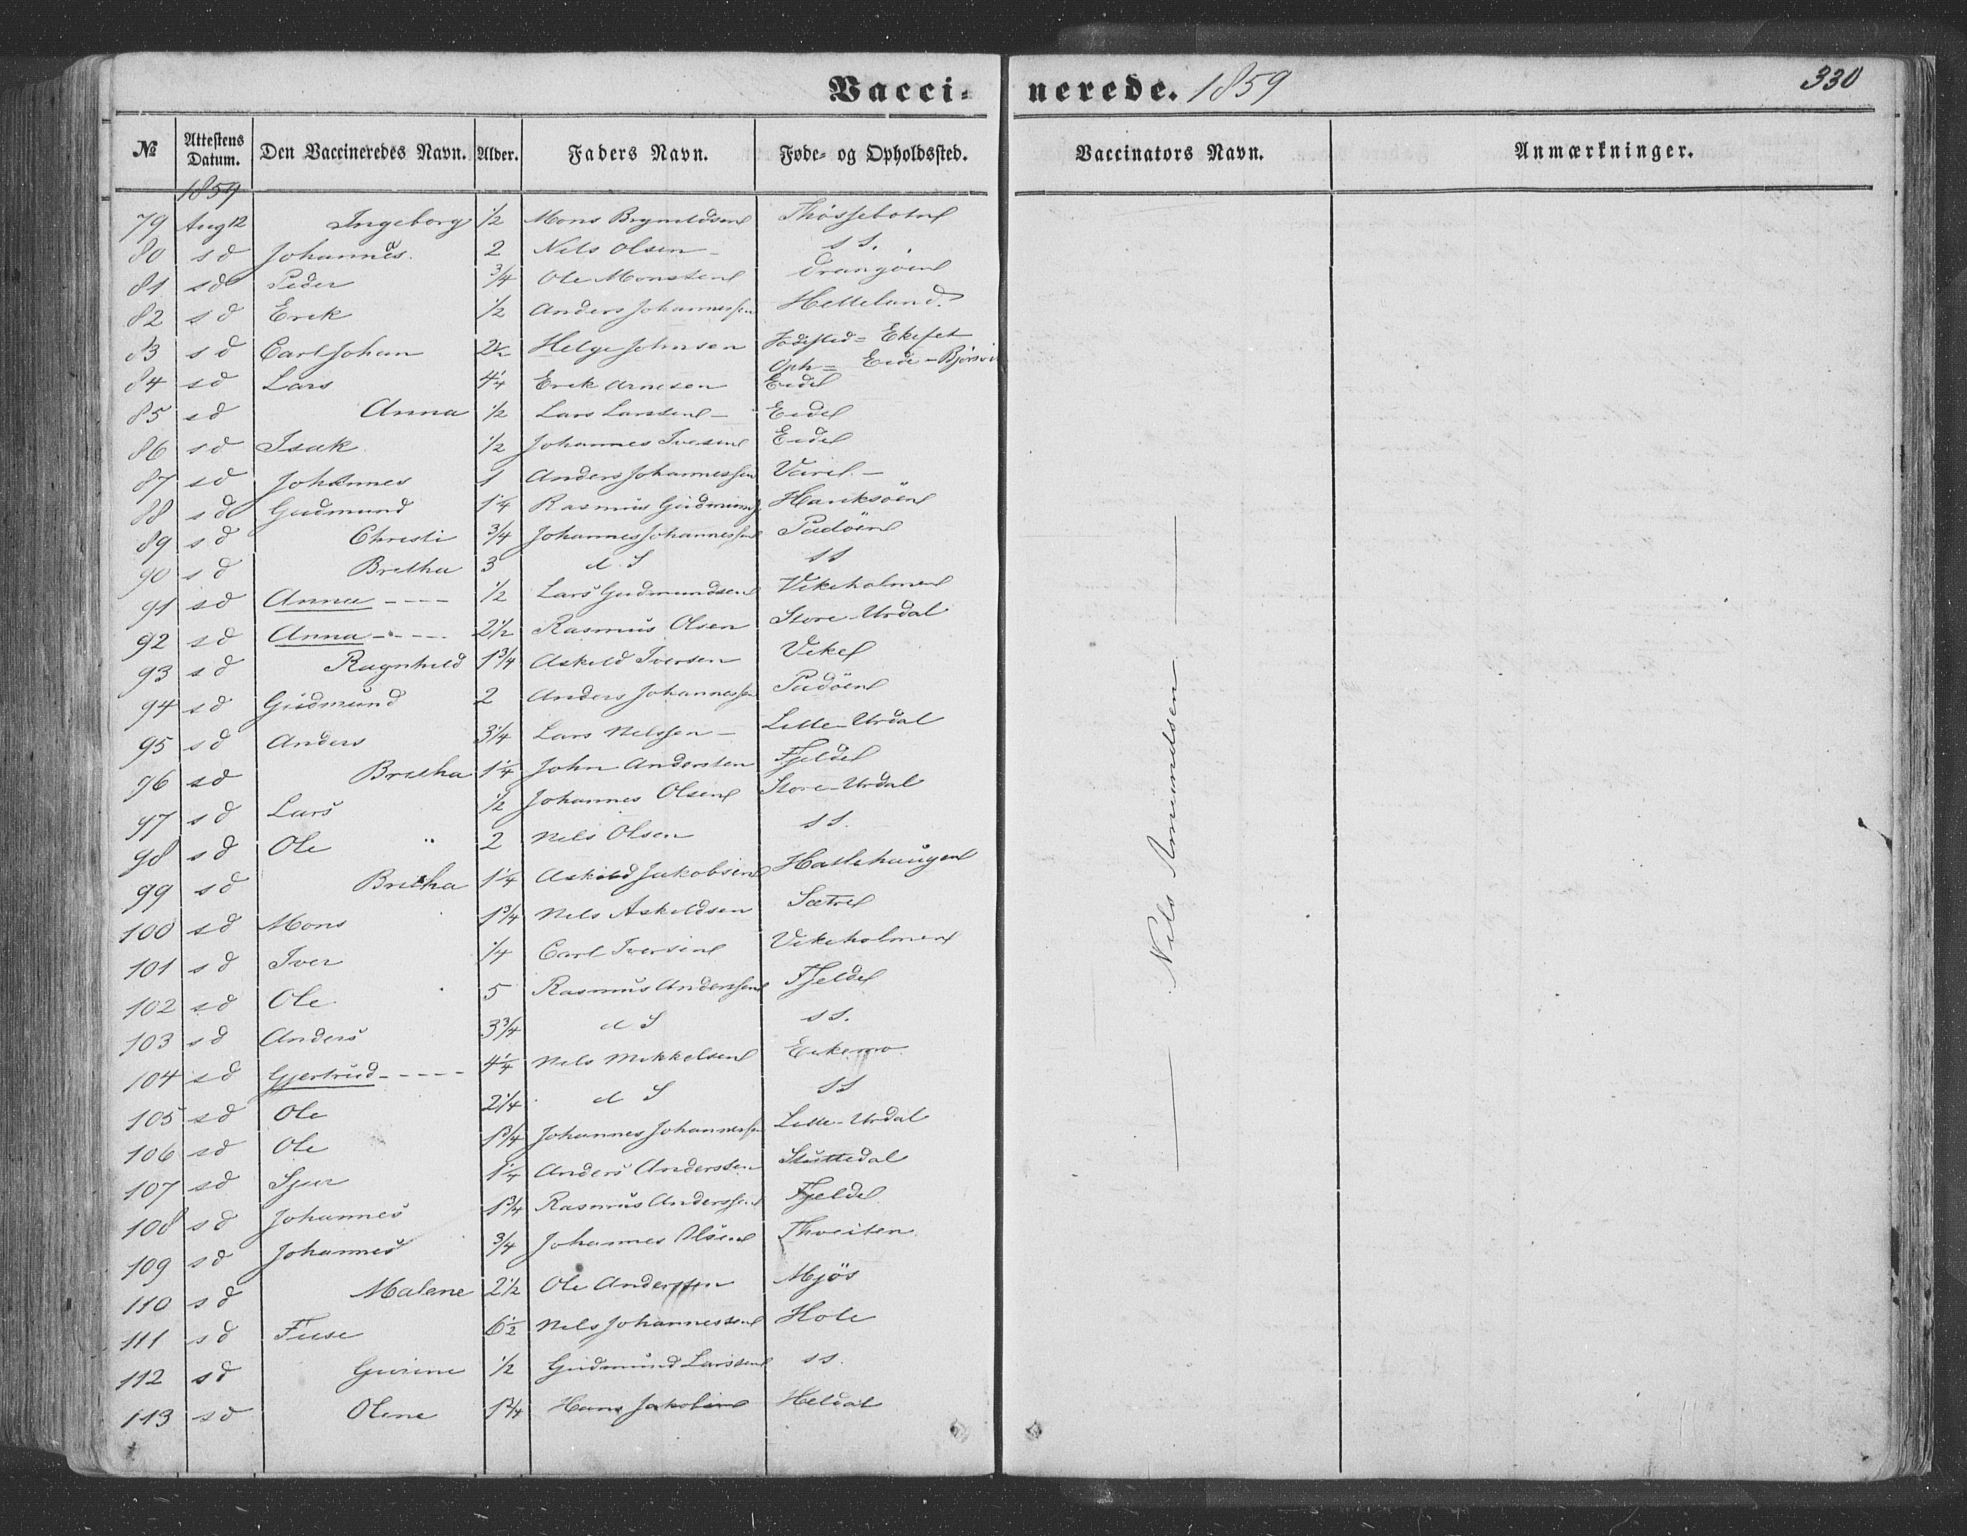 Vaccinerede. 1859
330
№ Attestens Datum. Den Vaccineredes Navn. Alder. Faders Navn. Føde- og Opholdssted. Vaccinators Navn. Anmærkninger.
1859
79 Aug 12 Ingeborg 1/2 Mons Brynildsen Thossebotn
80 sd Johannes. 2 Nils Olsen - ss.
81 sd Peder 3/4 Ole Monsen Drangøen
82 sd Erik 1/2 Anders Johannessen Helleland
83 sd Carl Johan 2 1/2 Helge Johnsen Fødested = Ekeset
Oph = Eide - Bjørsvi
84 sd Lars 4 1/4 Erik Arnesen Eide
85 sd Anna 1/2 Lars Larssen - Eide
86 sd Isak 1/2 Johannes Iversen Eide
87 sd Johannes 1 Anders Johannessen -
88 sd Gudmund 1 1/4 Rasmus Gudmund Hanksøen
89 sd Christi 3/4 Johannes Johannessen Padøen
90 sd Britha 3 d S ss
91 sd Anna ---- 1/2 Lars Gudmundsen Vikeholmen
92 sd Anna ----- 2 1/2 Rasmus Olsen Store-Urdal
93 sd Ragnhild 1 3/4 Askild Iversen Vike
94 sd Gudmund 2 Anders Johannessen Padøen
95 sd Anders 3 1/4 Lars Nilssen - Lille-Urdal
96 sd Britha 1 1/4 John Andersen Fjelde
97 sd Lars 1/2 Johannes Olsen Store-Urdal
98 sd Ole 2 Nils Olsen ss.
99 sd Britha 1 1/4 Askild Jakobsen Hatlehaugen
100 sd Mons 1 3/4 Nils Askildsen Sætre
101 sd Iver 1/4 Carl Iversen Vikeholmen
102 sd Ole 5 Rasmus Anderssen Fjelde
103 sd Anders 3 3/4 d S ss.
104 sd Gjertrud ----- 4 1/4 Nils Mikkelsen Eikemo
105 sd Ole 2 1/4 d S ss
106 sd Ole 1 3/4 Johannes Johannessen Lille-Urdal
107 sd Sjur 1 1/4 Anders Andersen Stuttedal
108 sd Johannes 1 3/4 Rasmus Anderssen Fjelde
109 sd Johannes 3/4 Johannes Olsen Thveiten
110 sd Malene 2 1/2 Ole Andersen Mjøs
111 sd 6 1/2 Nils Johannessen Hole
112 sd Gurine 1/2 Gudmund Larssen ss.
113 sd Olene 1 3/4 Hans Jakobsen Heldal
Nils Amundsen